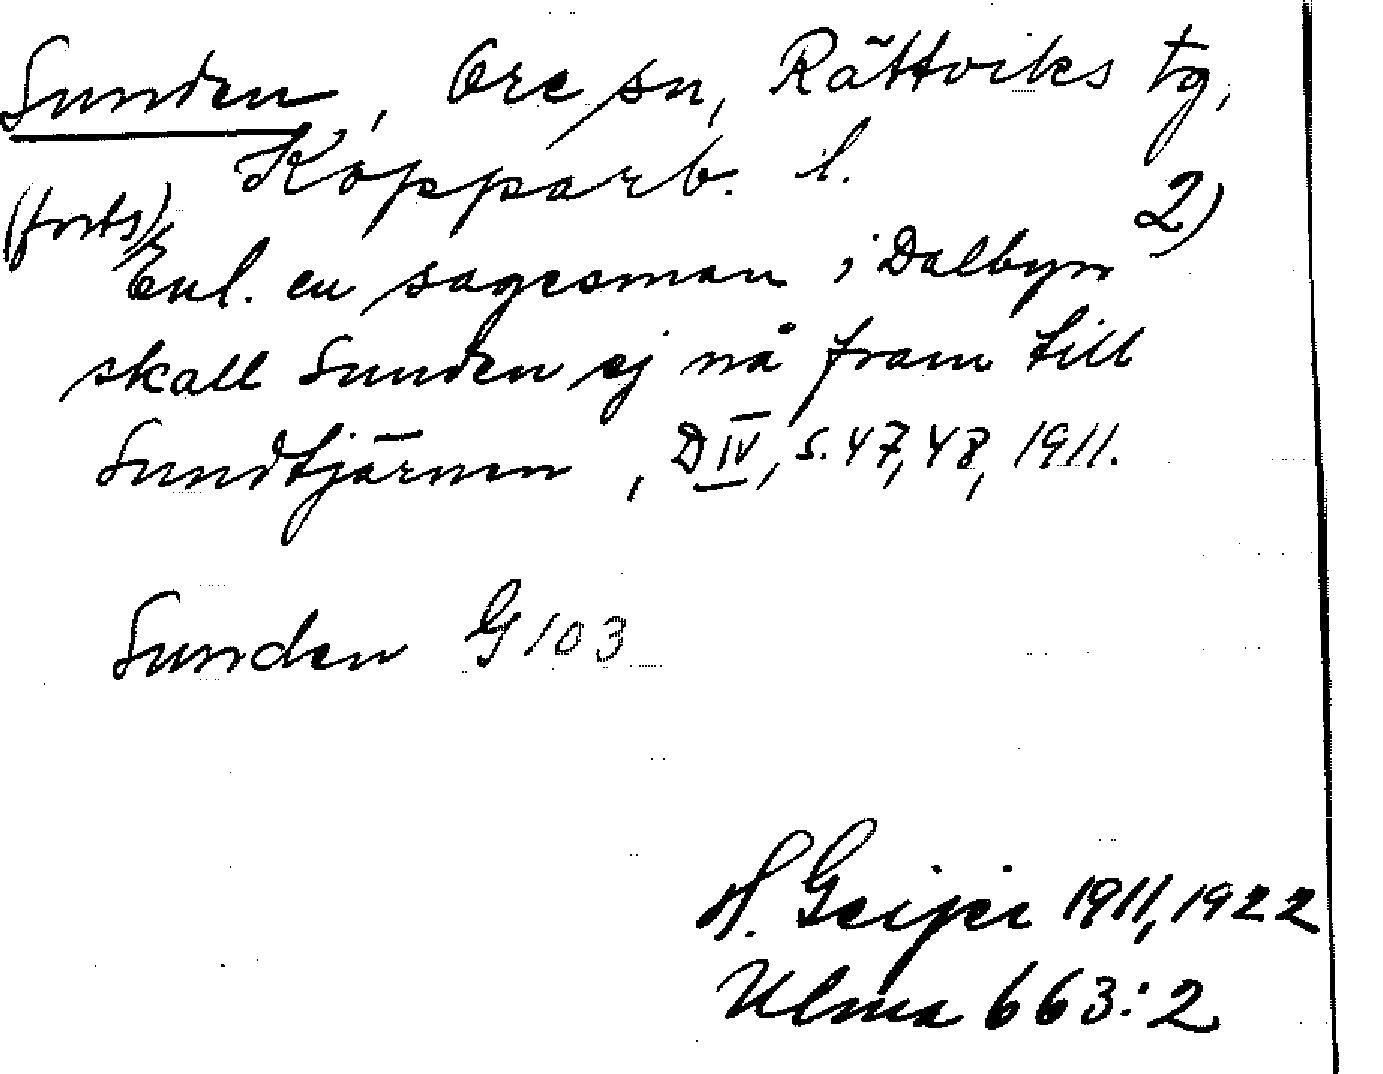 Sunden, Ore sn, Rättviks tg,
Kopparb. l.
(forts) 2)
Enl. en sagesman i Dalbyn
skall Sunden ej nå fram till
Sundtjärnen, D IV, s. 47, 48, 1911.
Sunden G 103
H. Geijer 1911, 1922
Ulma 663:2